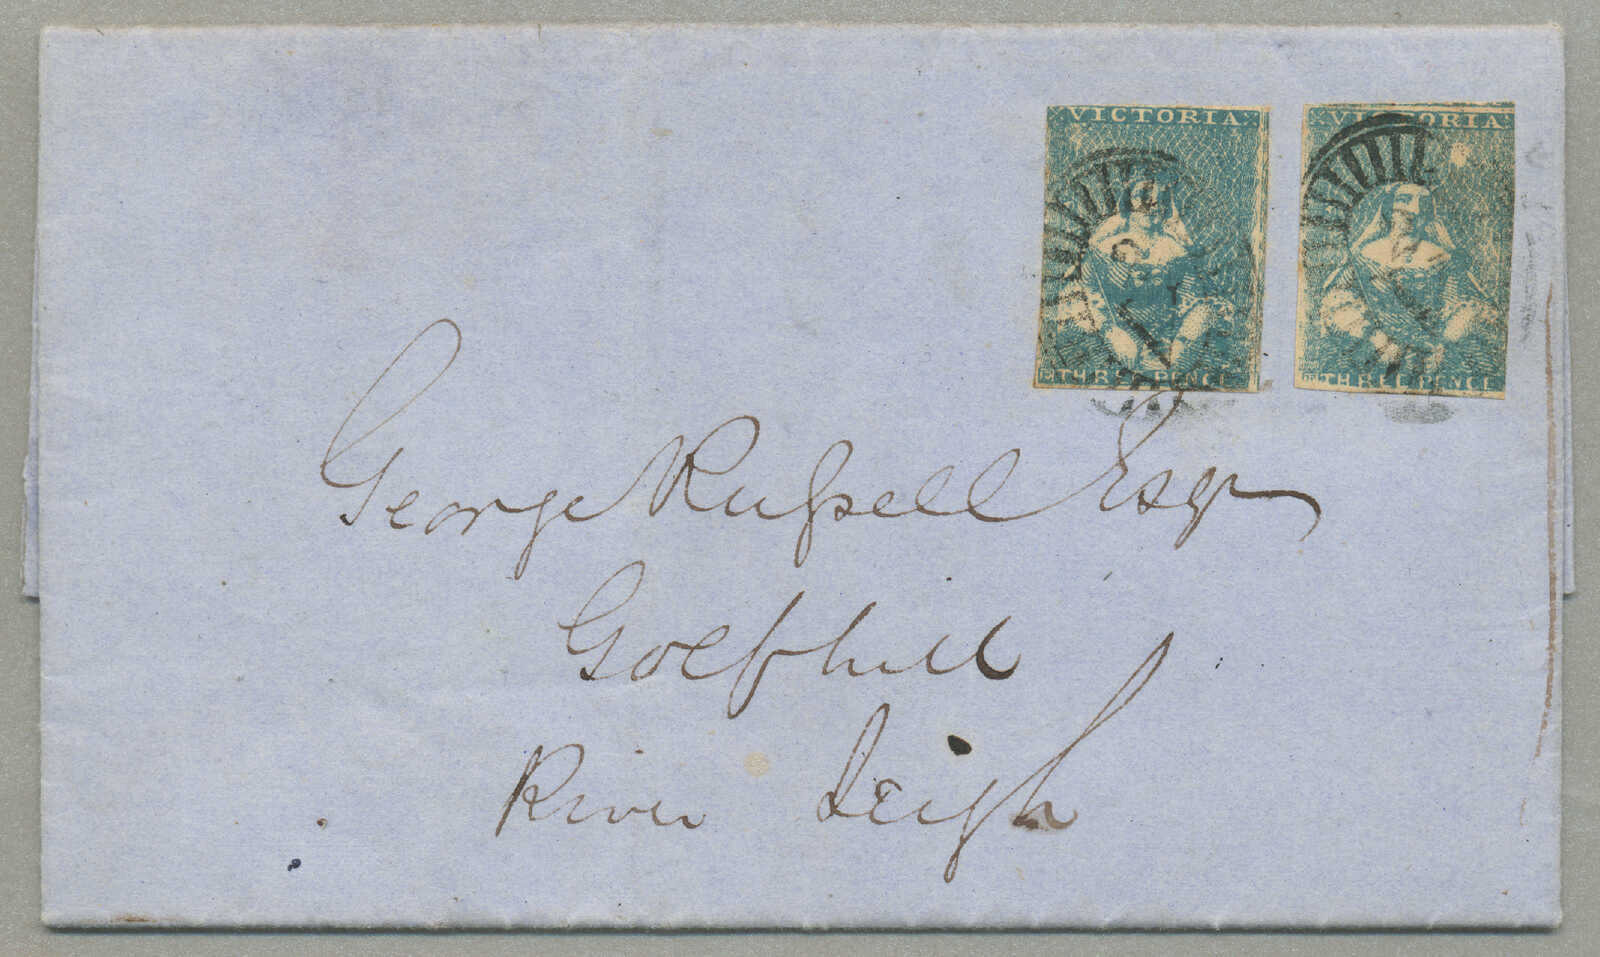 VICTORIA
THREE PENCE
VICTORIA
THREE PENCE
George Russell Esqr
Golfhill
River Leigh